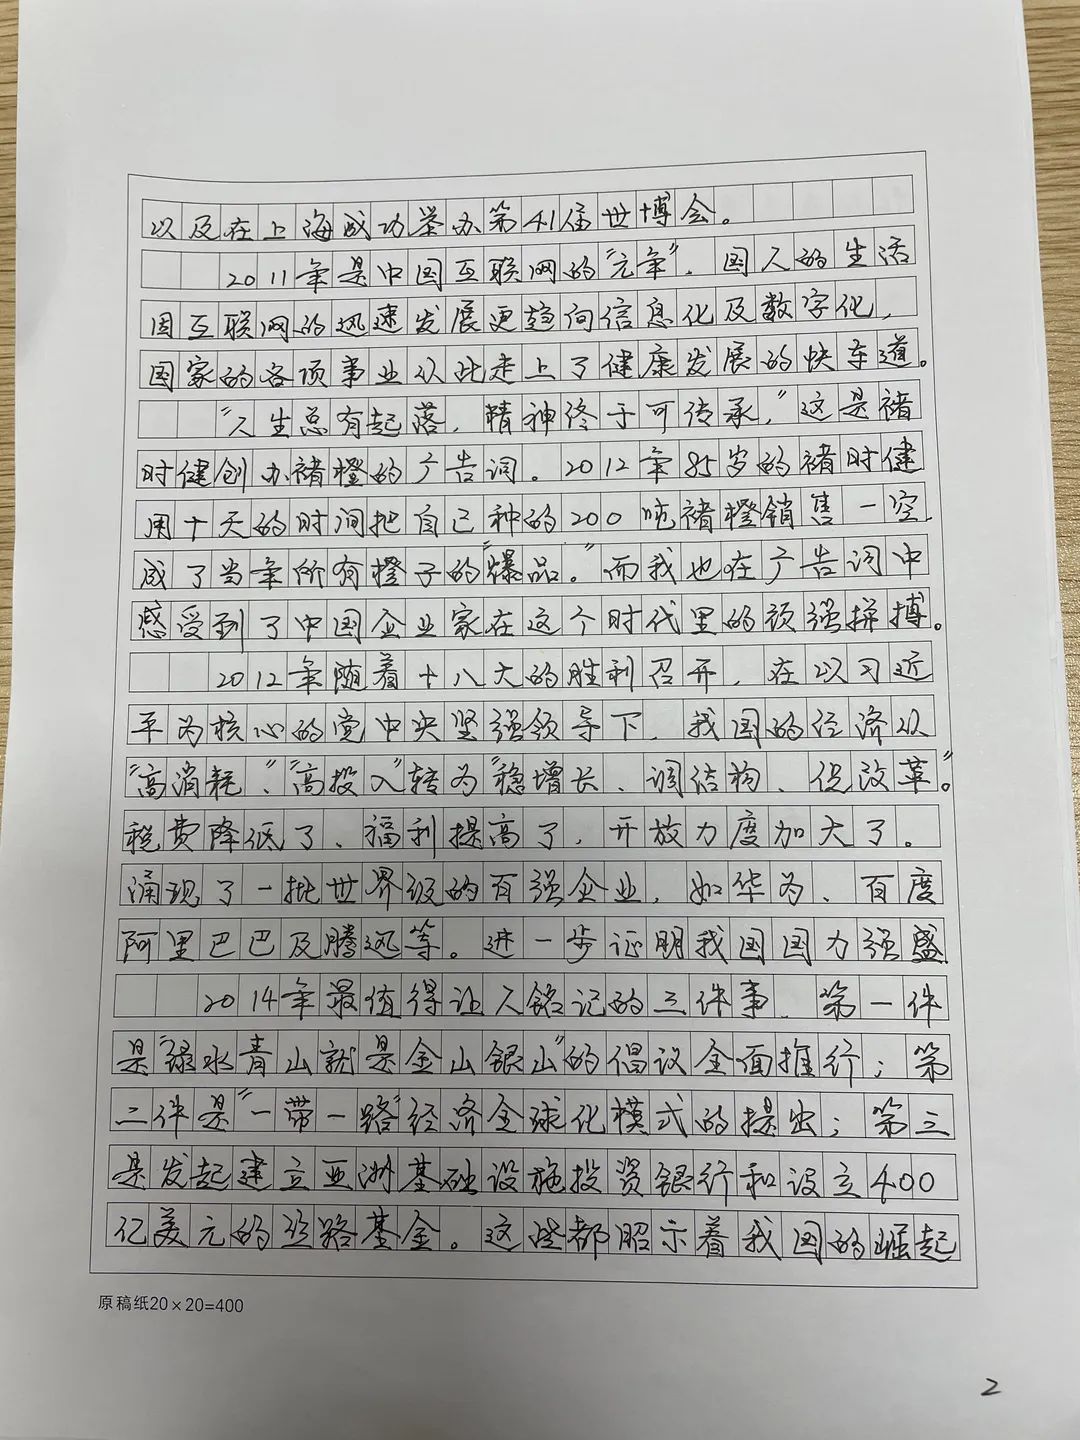 以及在上海成功举办第41届世博会。
2011年是中国互联网的“元年”，国人的生活
因互联网的迅速发展更趋向信息化及数字化，
国家的各项事业从此走上了健康发展的快车道。
“人生总有起落，精神终于可传承，”这是褚
时健创办褚橙的广告词。2012年85岁的褚时健
用十天的时间把自己种的200吨褚橙销售一空
成了当年所有橙子的“爆品。”而我也在广告词中
感受到了中国企业家在这个时代里的顽强拼搏。
2012年随着十八大的胜利召开，在以习近
平为核心的党中央坚强领导下，我国的经济从
“高消耗”、“高投入”转为“稳增长、调结构、促改革。”
税费降低了、福利提高了，开放力度加大了。
涌现了一批世界级的百强企业，如华为、百度
阿里巴巴及腾迅等。进一步证明我国国力强盛
2014年最值得让人铭记的三件事，第一件
是“绿水青山就是金山银山”的倡议全面推行；第
二件是“一带一路”经济全球化模式的提出；第三
是发起建立亚洲基础设施投资银行和设立400
亿美元的丝路基金。这些都昭示着我国的崛起
原稿纸20×20=400
2